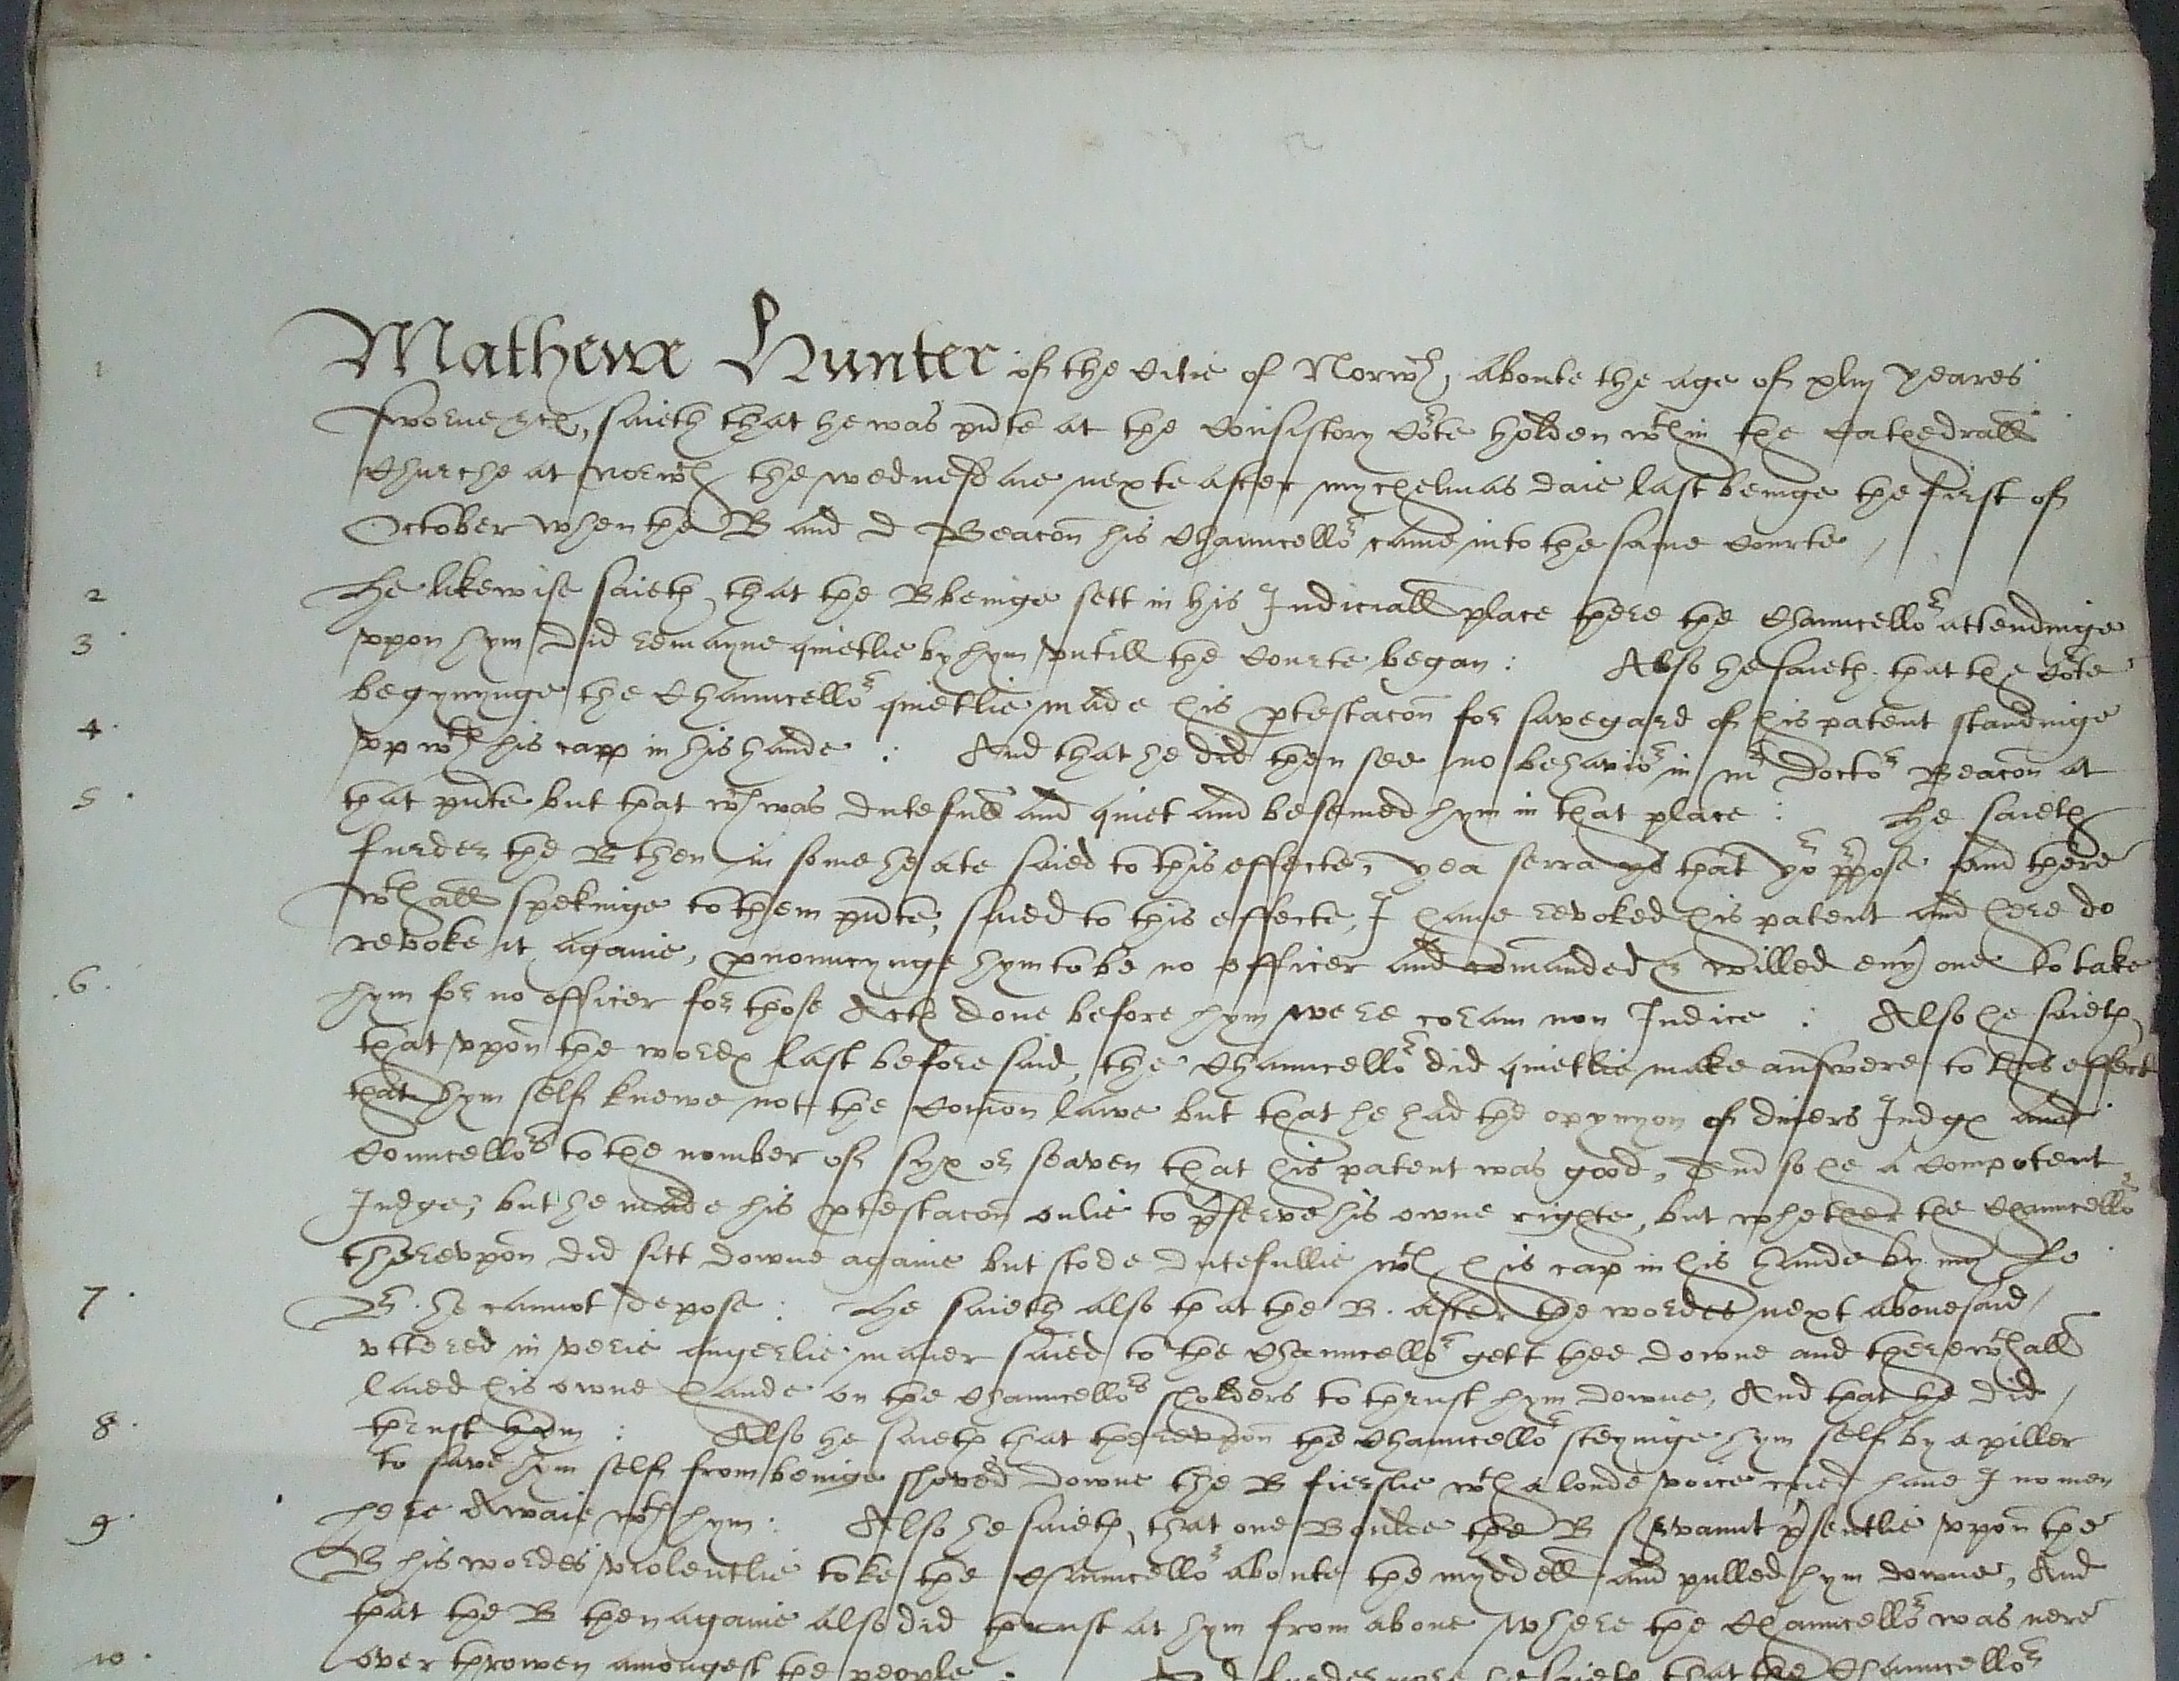 1 Mathewe Hunter of the Citie of Norwch, aboute the age of xliij yeares
sworne etc, saieth that he was pnte at the Consistory Cote holden wthin the Cathedrall
Churche at Norwch the wednesdaie nexte after mychelmas daie last beinge the first of
October when the B and D Beacon his Chauncellor came into the same Courte
2 He likewise saieth, that the B beinge sett in his Judiciall place there the Chauncellor attendinge
3 vppon hym did remayne quietlie by hym vntill the Courte began : Also he saieth that the Cote
begynynge the Chauncellor quietlie made his ptestacon for savegard of his patent standinge
4 vpp wth his capp in his hande : And that he did then see no behavior in mr Doctor Beacon at
5 that pnte but that wch was dutefull and quiet and besemed hym in that place : He saieth
furder the B then in some heate saied to this effecte, yea serra ys that yor ppose and there
wthall spekinge to them pnte, saied to this effecte, I have revoked his patent and here do
revoke it againe, pnouncynge hym to be no officer and comanded & willed eny one to take
6 hym for no officer for those Actes done before hym were coram non Judice : Also he saieth
that vppon the wordes last before said, the Chauncellor did quietlie make answere to this effect
that hym self knewe not the Comon lawe but that he had the opynyon of divers Judges and
Councellors to the nomber of syx or seaven that his patent was good, And so he a Competent
Judge, but he made his ptestacon onlie to pserve his owne righte, but whether the Chauncellor
therevpon did sitt downe againe but stode dutefullie wth his cap in his hande by my Lo
7 B. he cannot depose : He saieth also that the B. after the wordes next abovesaid
vttered in verie angerlie maner saied to the Chauncellor gett thee downe and therewthall
laied his owne hande on the Chauncellors sholders to thrust hym downe, And that he did
8 thrust hym : Also he saieth that therevpon the Chauncellor steyinge hym self by a piller
to save hym self from beinge shoved downe the B fierslie wth a loude voice cried have I no men
9 here Awaie wth hym : Also he saieth, that one Boulte the B servaunt psentlie vppon the
B his wordes violentlie toke the Chauncellor aboute the myddell and pulled hym downe, And
that the B then againe also did thrust at hym from above where the Chauncellor was nere
10 over throwen amongest the people : And furdermore he saieth that the Chauncellor